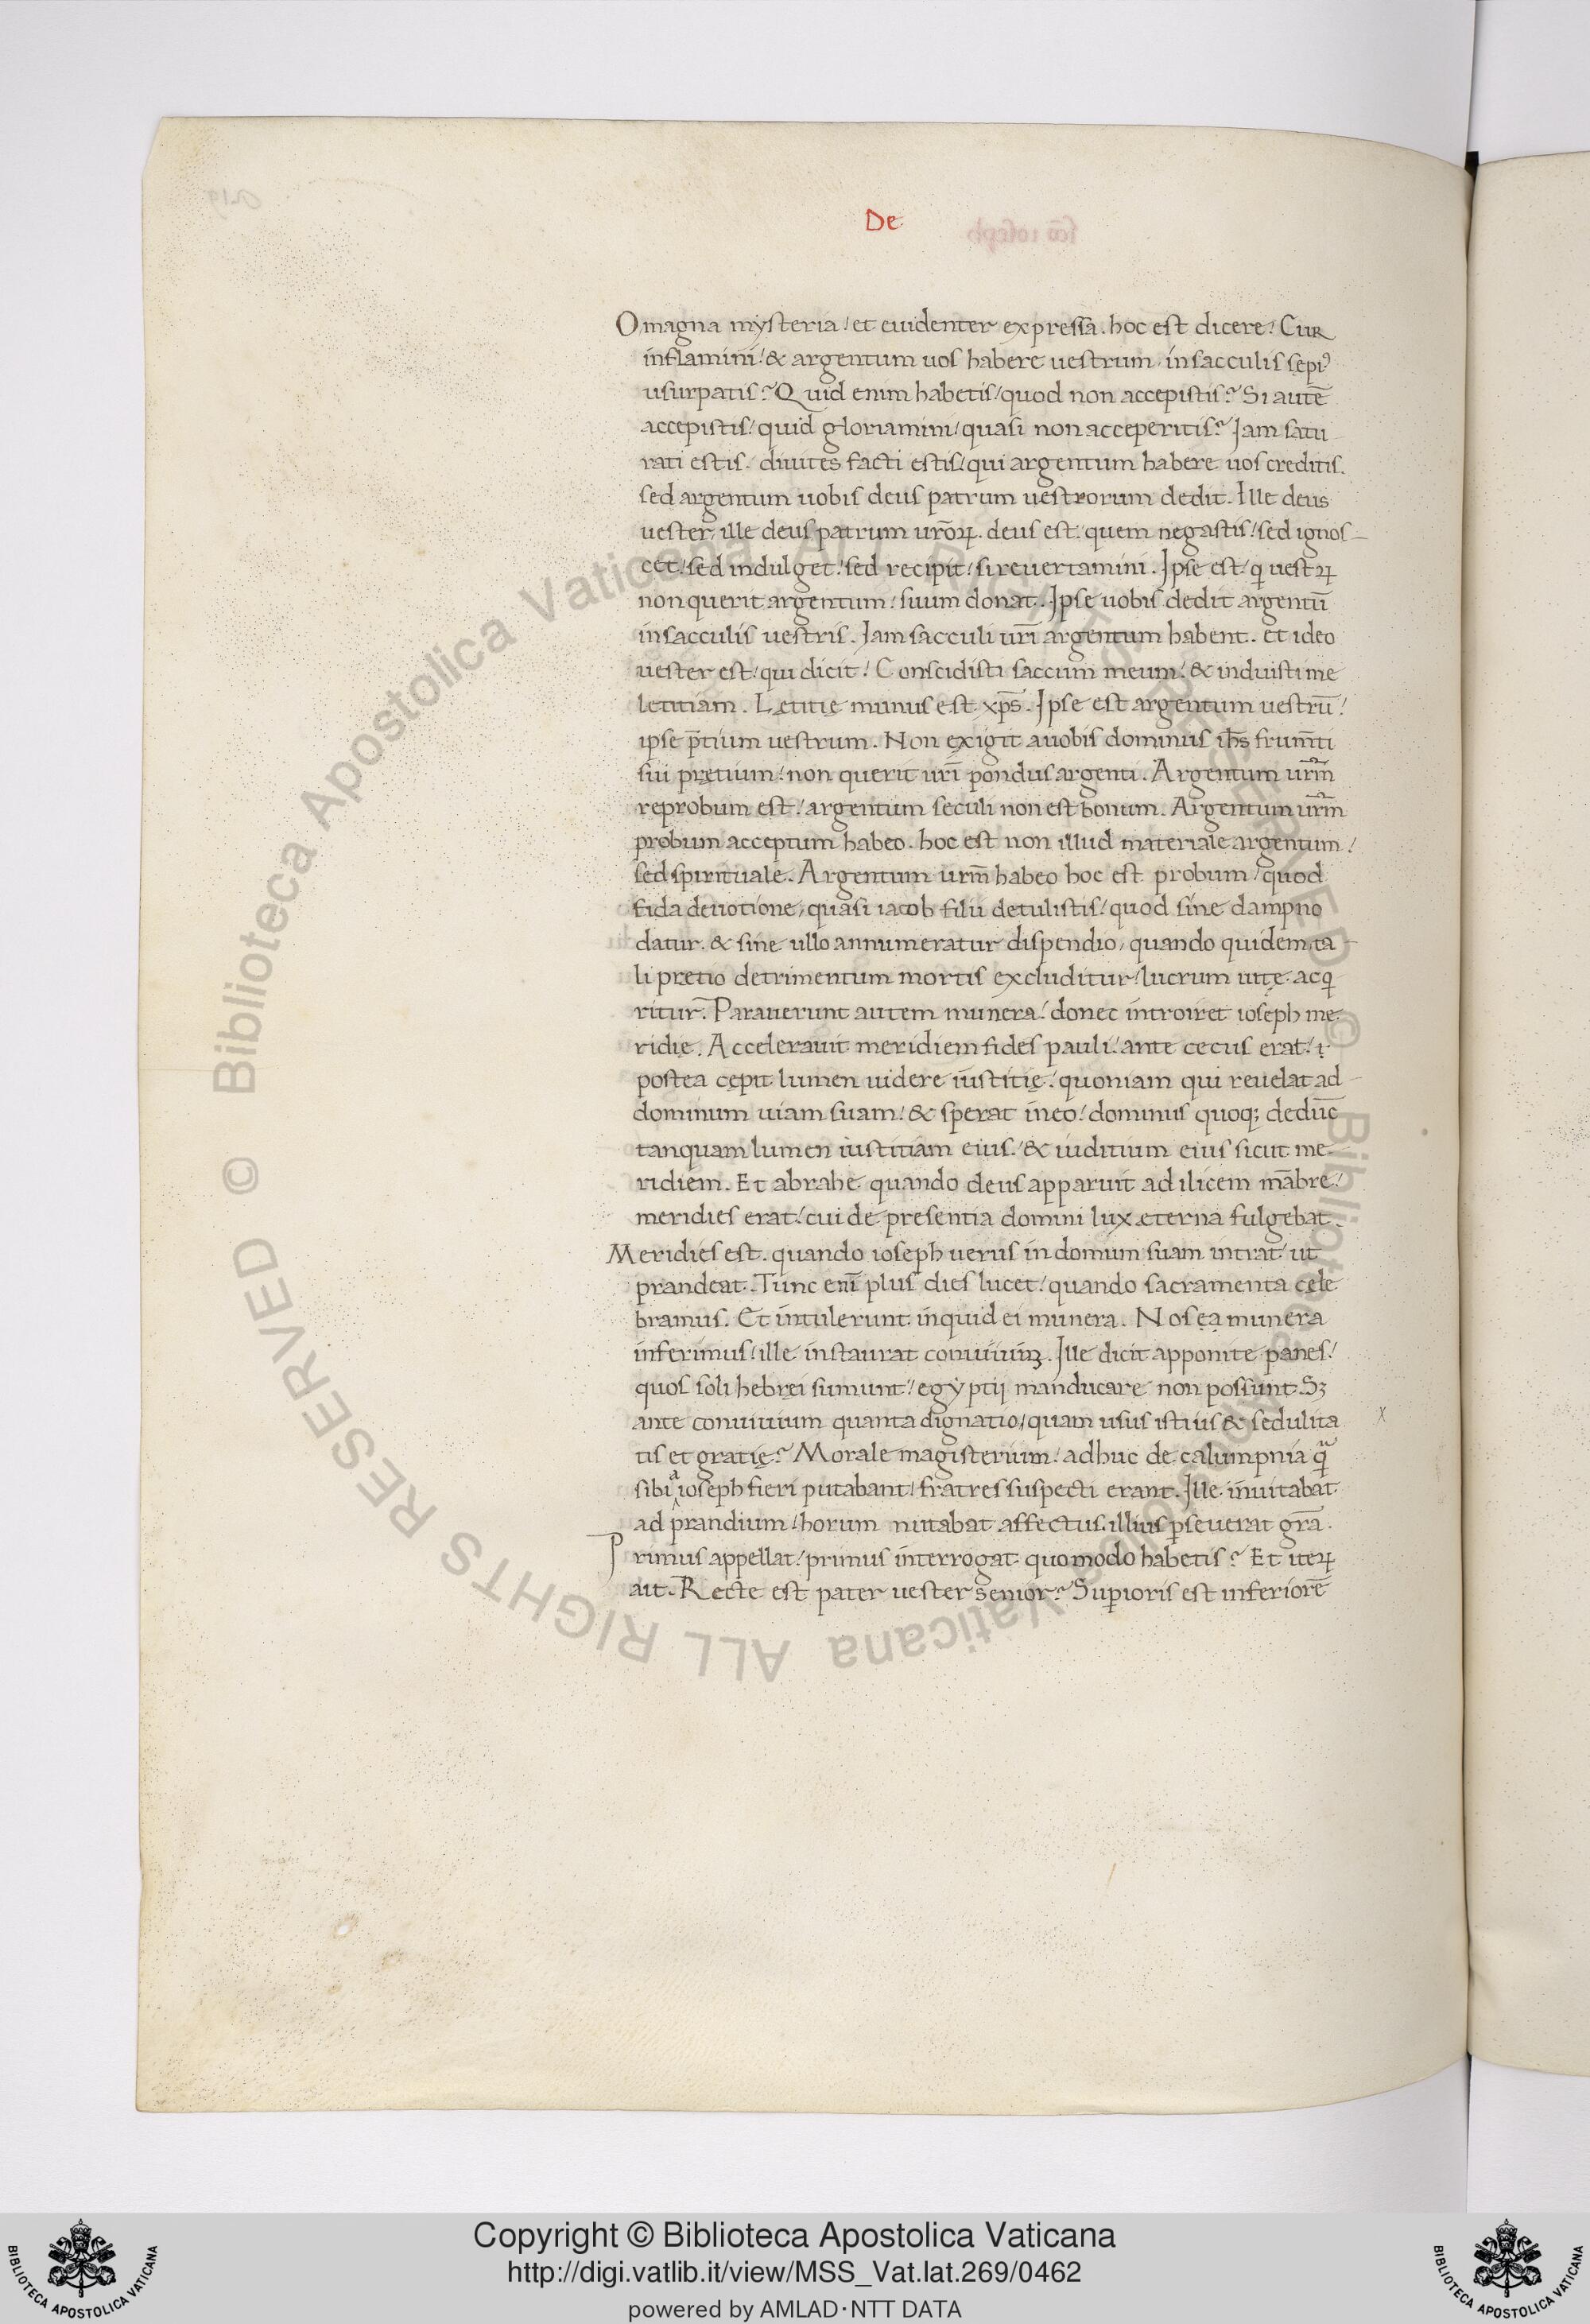 De
O magna mysteria / et euidenter expressa . hoc est dicere / Cur
inflamini / & argentum uos habere uestrum . in sacculis sepiꝰ
usurpatis? Quid enim habetis / quod non accepistis? Si autē
accepistis / quid gloriamini / quasi non acceperitis? Iam satu
rati estis . diuites facti estis / qui argentum habere uos creditis.
sed argentum uobis deus patrum uestrorum dedit . Ille deus
uester, ille deus patrum urōꝝ . deus est . quem negastis / sed ignos-
cet / sed indulget / sed recipit / si reuertamini . Ipse est / qi uestꝝ
non querit argentum / suum donat . Ipse uobis dedit argentū
in sacculis uestris . Iam sacculi urī argentum habent . et ideo
uester est / qui dicit / Conscidisti saccum meum / & induisti me
letitiam . Lętitię munus est xp̄s . Ipse est argentum uestrū /
ipse p̄tium uestrum . Non exigit a uobis dominus ih̄s frum̄ti
sui pretium / non querit urī pondus argenti . Argentum urm̄
reprobum est / argentum seculi non est bonum . Argentum urm̄
probum acceptum habeo . hoc est non illud materiale argentum /
sed spirituale . Argentum urm̄ habeo hoc est probum / quod
fida deuotione, quasi iacob filii detulistis / quod sine dampno
datur . & sine ullo annumeratur dispendio, quando quidem ta-
li pretio detrimentum mortis excluditur / lucrum uitę acqi
ritur . Parauerunt autem munera / donec introiret ioseph me-
ridie . Accelerauit meridiem fides pauli / ante cecus erat /
postea cępit lumen uidere iustitię / quoniam qui reuelat ad-
dominum uiam suam / & sperat in eo / dominus quoq; deduc̄
tanquam lumen iustitiam eius / & iuditium eius sicut me-
ridiem . Et abrahe quando deus apparuit ad ilicem mābre /
meridies erat / cui de presentia domini lux eterna fulgebat .
Meridies est . quando ioseph uerus in domum suam intrat / ut
prandeat . Tunc enī plus dies lucet / quando sacramenta cele
bramus . Et intulerunt inquid ei munera . Nos ea munera
inferimus / ille instaurat conuiuiuꝫ . Ille dicit apponite panes /
quos soli hebręi sumunt / egyptij manducare non possunt . Sꝫ
ante conuiuium quanta dignatio / quam usus istius & sedulita
tis et gratię? Morale magisterium / adhuc de calumpnia qͣ
sibi a ioseph fieri putabant / fratres suspecti erant . Ille inuitabat
ad prandium / horum nutabat affectus . illius p̄seuerat grā .
Primus appellat / primus interrogat quomodo habetis? Et iteꝝ
ait . Recte est pater uester senior? Suꝑioris est inferiorē
Copyright © Biblioteca Apostolica Vaticana
http://digi.vatlib.it/view/MSS_Vat.lat.269/0462
powered by AMLAD·NTT DATA
BIBLIOTECA APOSTOLICA VATICANA
BIBLIOTECA APOSTOLICA VATICANA
© Biblioteca Apostolica Vaticana ALL RIGHTS RESERVED © Biblioteca Apostolica Vaticana ALL RIGHTS RESERVED